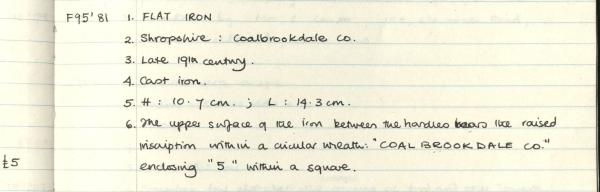 F95'81 1. FLAT IRON
2. Shropshire : Coalbrookdale Co.
3. Late 19th century.
4. Cast iron.
5. H : 10.7 cm. ; L : 14.3 cm.
6. The upper surface of the iron between the handles bears the raised
inscription within a circular wreath: "COALBROOKDALE CO."
£5 enclosing "5" within a square.